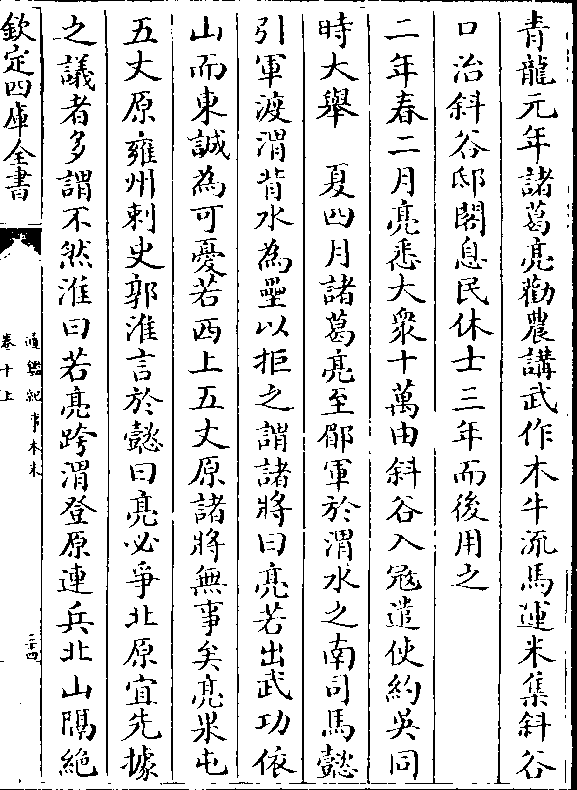 青龍元年諸葛亮勸農講武作木牛流馬運米集斜谷
口治斜谷邸閣息民休士三年而後用之
二年春二月亮悉大衆十萬由斜谷入冦遣使約吳同
時大舉　夏四月諸葛亮至郿軍於渭水之南司馬懿
引軍渡渭背水為壘以拒之謂諸將曰亮若出武功依
山而東誠為可憂若西上五丈原諸將無事矣亮果屯
五丈原雍州刺史郭淮言於懿曰亮必爭北原宜先據
之議者多謂不然淮曰若亮跨渭登原連兵北山隔絶
欽定四庫全書
通鑑紀事本末
卷十上
二十四